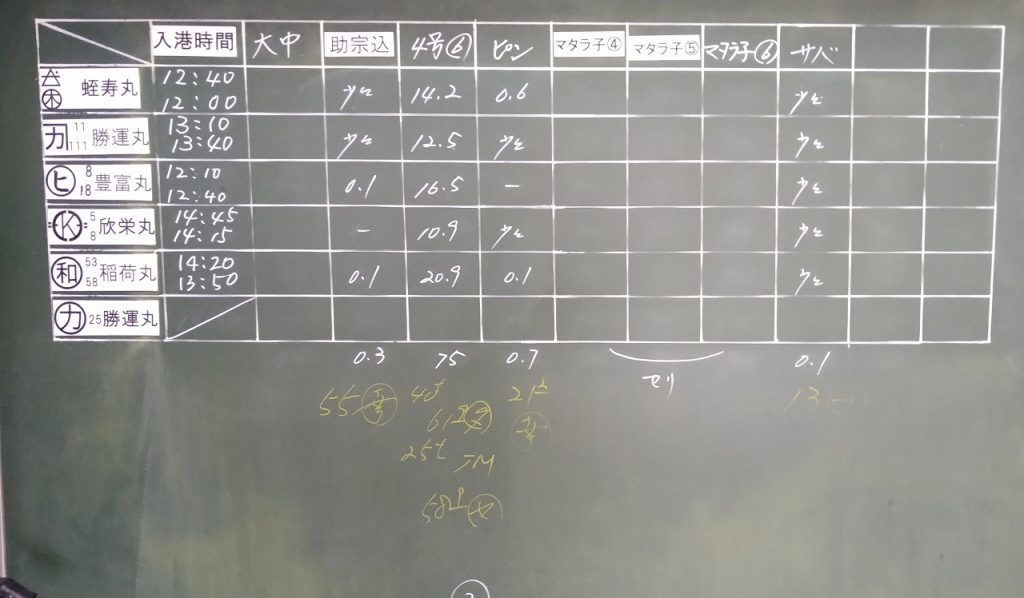 入港時間 大中 助宗込 4号⑥ ピン マタラ子④ マタラ子⑤ マタラ子⑥ サバ
蛭寿丸 12:40 12:00 少々 14.2 0.6 少々
カ 11 111 勝運丸 13:10 13:40 少々 12.5 少々 少々
ヒ 8 18 豊富丸 12:10 12:40 0.1 16.5 - 少々
K 5 8 欣栄丸 14:45 14:15 - 10.9 少々 少々
和 53 58 稲荷丸 14:20 13:50 0.1 20.9 0.1 少々
カ 25 勝運丸
0.3 75 0.7 セリ 0.1
55 13
25t